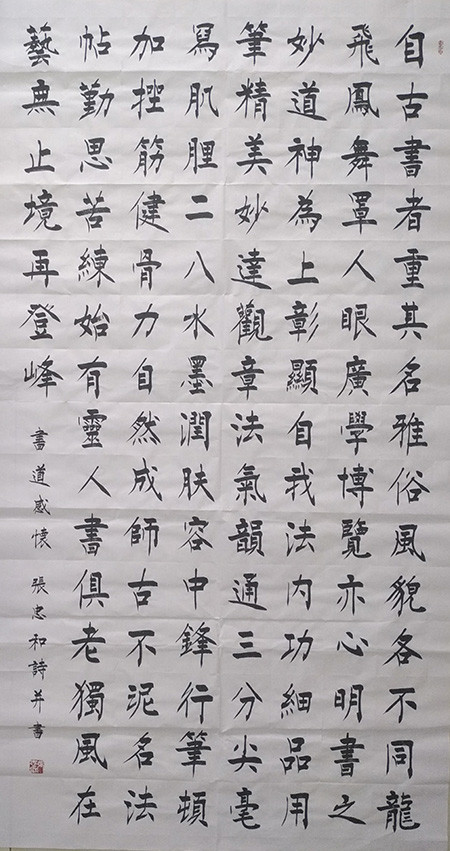 自古書者重其名雅俗風貌各不同龍
飛鳳舞罩人眼廣學博覽亦心明書之
妙道神為上彰顯自我法內功細品用
筆精美妙達觀章法氣韻通三分尖毫
寫肌二八水墨潤肤容中鋒行筆頓
加挫筋健骨力自然成師古不泥名法
帖勤思苦練始有靈人書俱老獨風在
藝無止境再登峰
書道感懷 張忠和詩并書